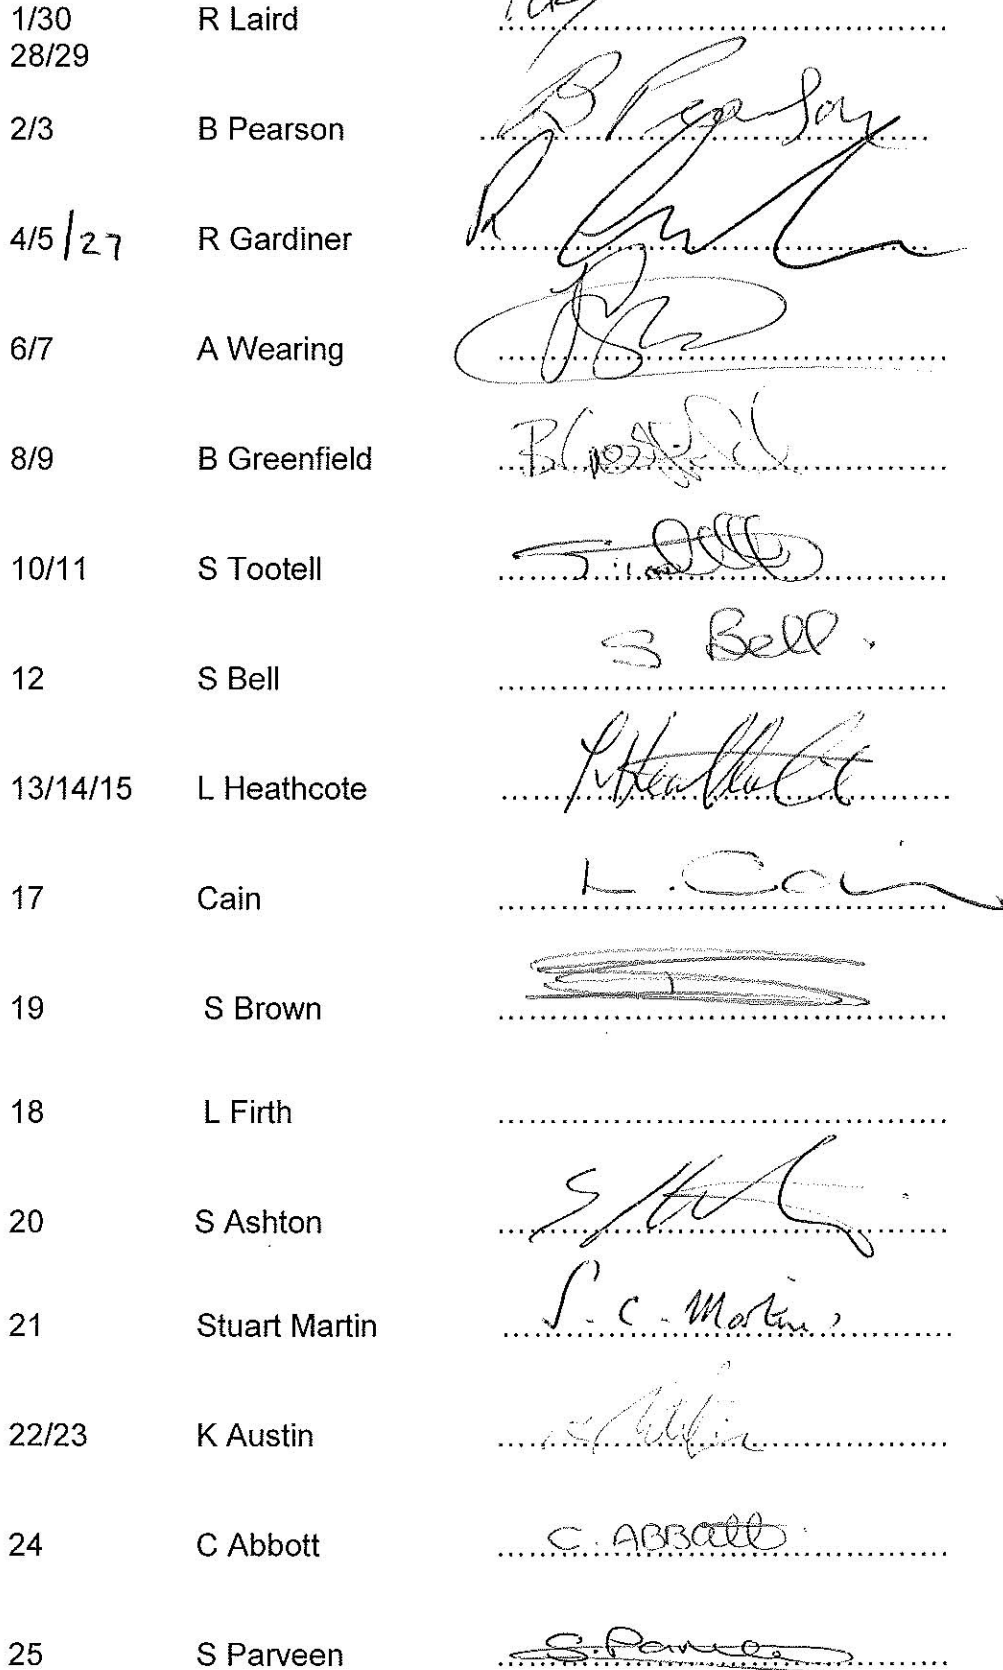 1/30 R Laird
28/29
2/3 B Pearson B Pearson
4/5/27 R Gardiner
6/7 A Wearing
8/9 B Greenfield
10/11 S Tootell
12 S Bell S Bell.
13/14/15 L Heathcote L Heathcote
17 Cain L. Cain
19 S Brown
18 L Firth
20 S Ashton
21 Stuart Martin S. C. Martin
22/23 K Austin
24 C Abbott C. ABBott
25 S Parveen S. Parveen